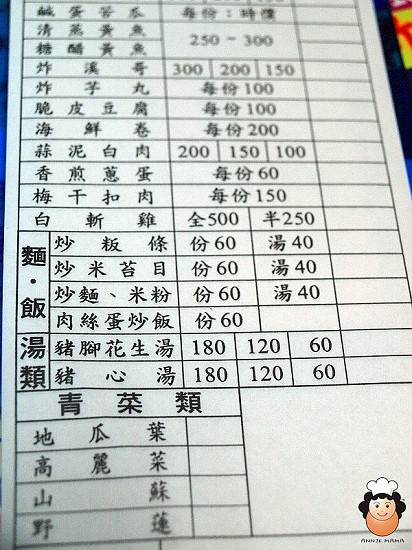 鹹蛋苦瓜 每份：時價
清蒸黃魚 250 ~ 300
糖醋黃魚
炸溪哥 300 200 150
炸芋丸 每份 100
脆皮豆腐 每份 100
海鮮卷 每份 200
蒜泥白肉 200 150 100
香煎蔥蛋 每份 60
梅干扣肉 每份 150
白斬雞 全500 半250
麵·飯
炒粄條 份 60 湯 40
炒米苔目 份 60 湯 40
炒麵、米粉 份 60 湯 40
肉絲蛋炒飯 份 60
湯類
豬腳花生湯 180 120 60
豬心湯 180 120 60
青菜類
地瓜葉
高麗菜
山蘇
野蓮
ANNIE MAMA